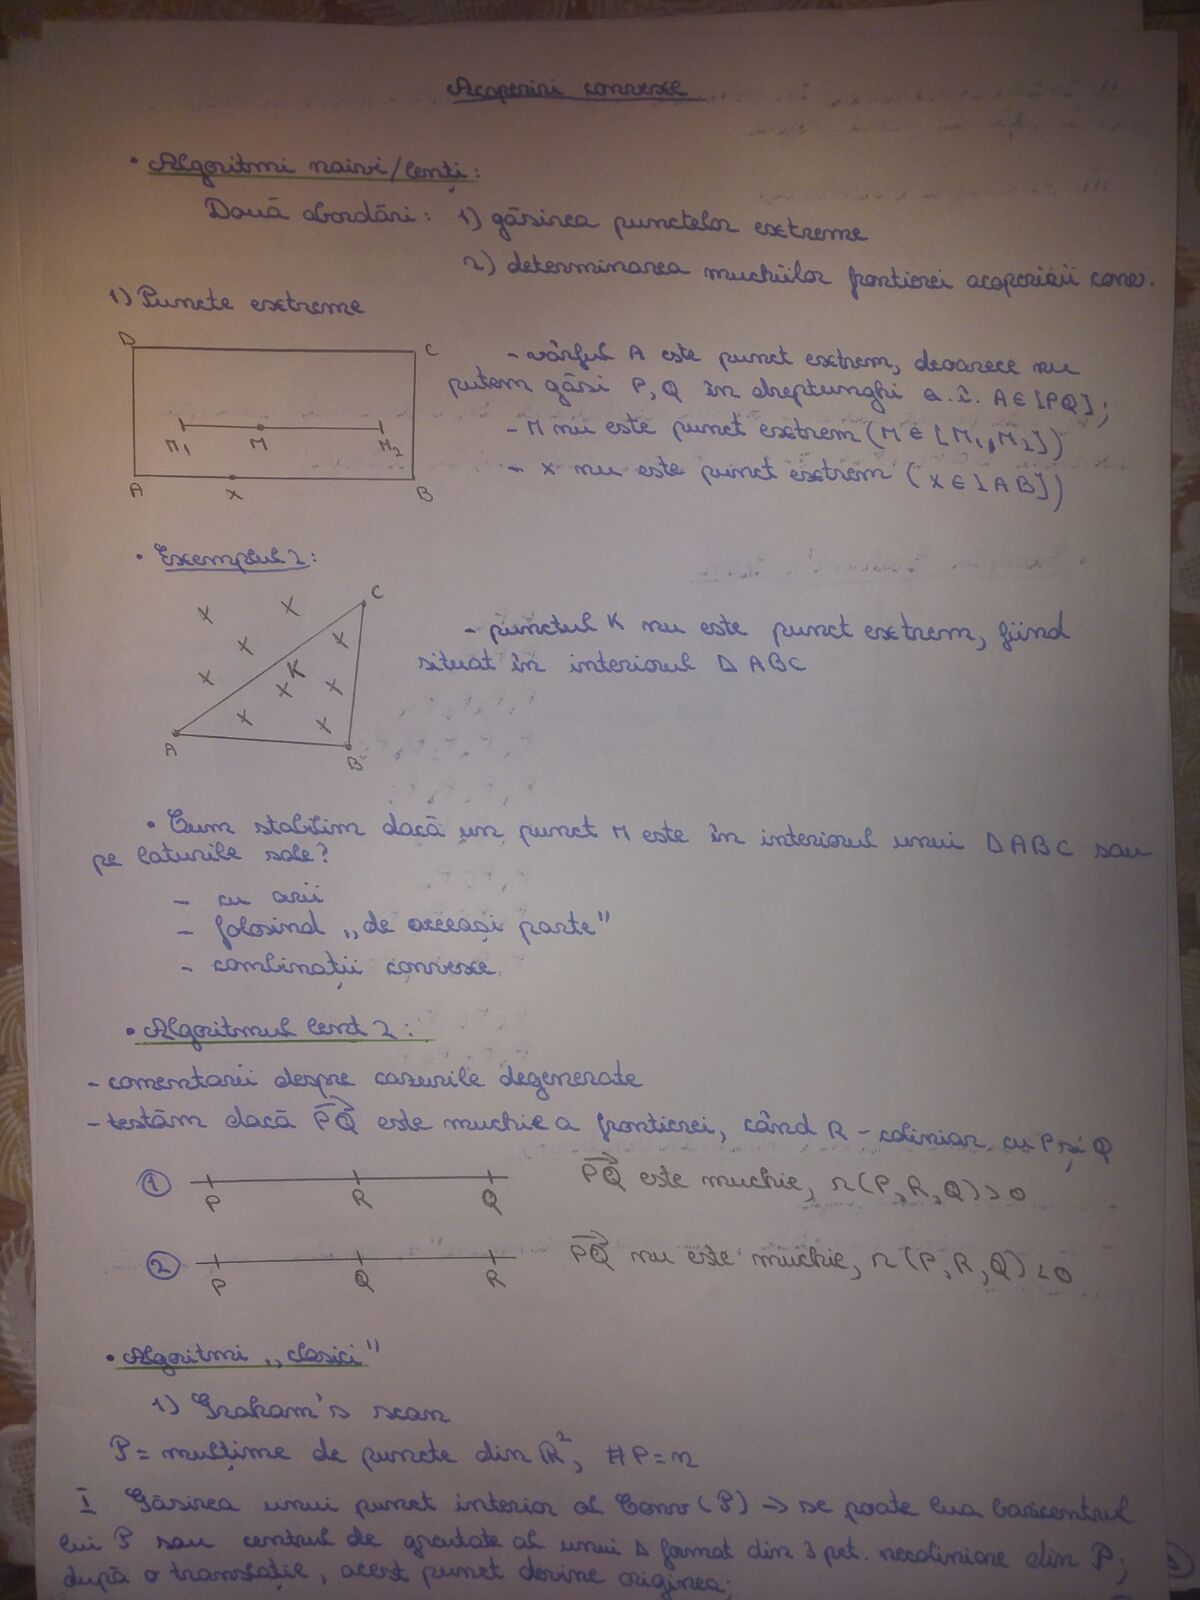 Acoperiri convexe
• Algoritmi naivi/lenți:
Două abordări: 1) găsirea punctelor extreme
2) determinarea muchiilor frontierei acoperirii conv.
1) Puncte extreme
D C
- vârful A este punct extrem, deoarece nu
putem găsi P, Q în dreptunghi a.î. A∈[PQ];
- M nu este punct extrem (M∈[M₁,M₂])
- X nu este punct extrem (X∈[AB])
M₁ M M₂
A X B
• Exemplul 2:
C
- punctul K nu este punct extrem, fiind
situat în interiorul ΔABC
K
A B
• Cum stabilim dacă un punct M este în interiorul unui ΔABC sau
pe laturile sale?
- cu arii
- folosind „de aceeași parte"
- combinații convexe
• Algoritmul lent 2:
- comentarii despre cazurile degenerate
- testăm dacă PQ⃗ este muchie a frontierei, când R - coliniar cu P și Q
① P R Q PQ⃗ este muchie, r(P,R,Q)>0
② P Q R PQ⃗ nu este muchie, r(P,R,Q)<0
• Algoritmi „clasici"
1) Graham's scan
P = mulțime de puncte din ℝ², #P=n
I Găsirea unui punct interior al Conv(P) → se poate lua baricentrul
lui P sau centrul de greutate al unui Δ format din 3 pct. necoliniare din P;
după o translație, acest punct devine originea;